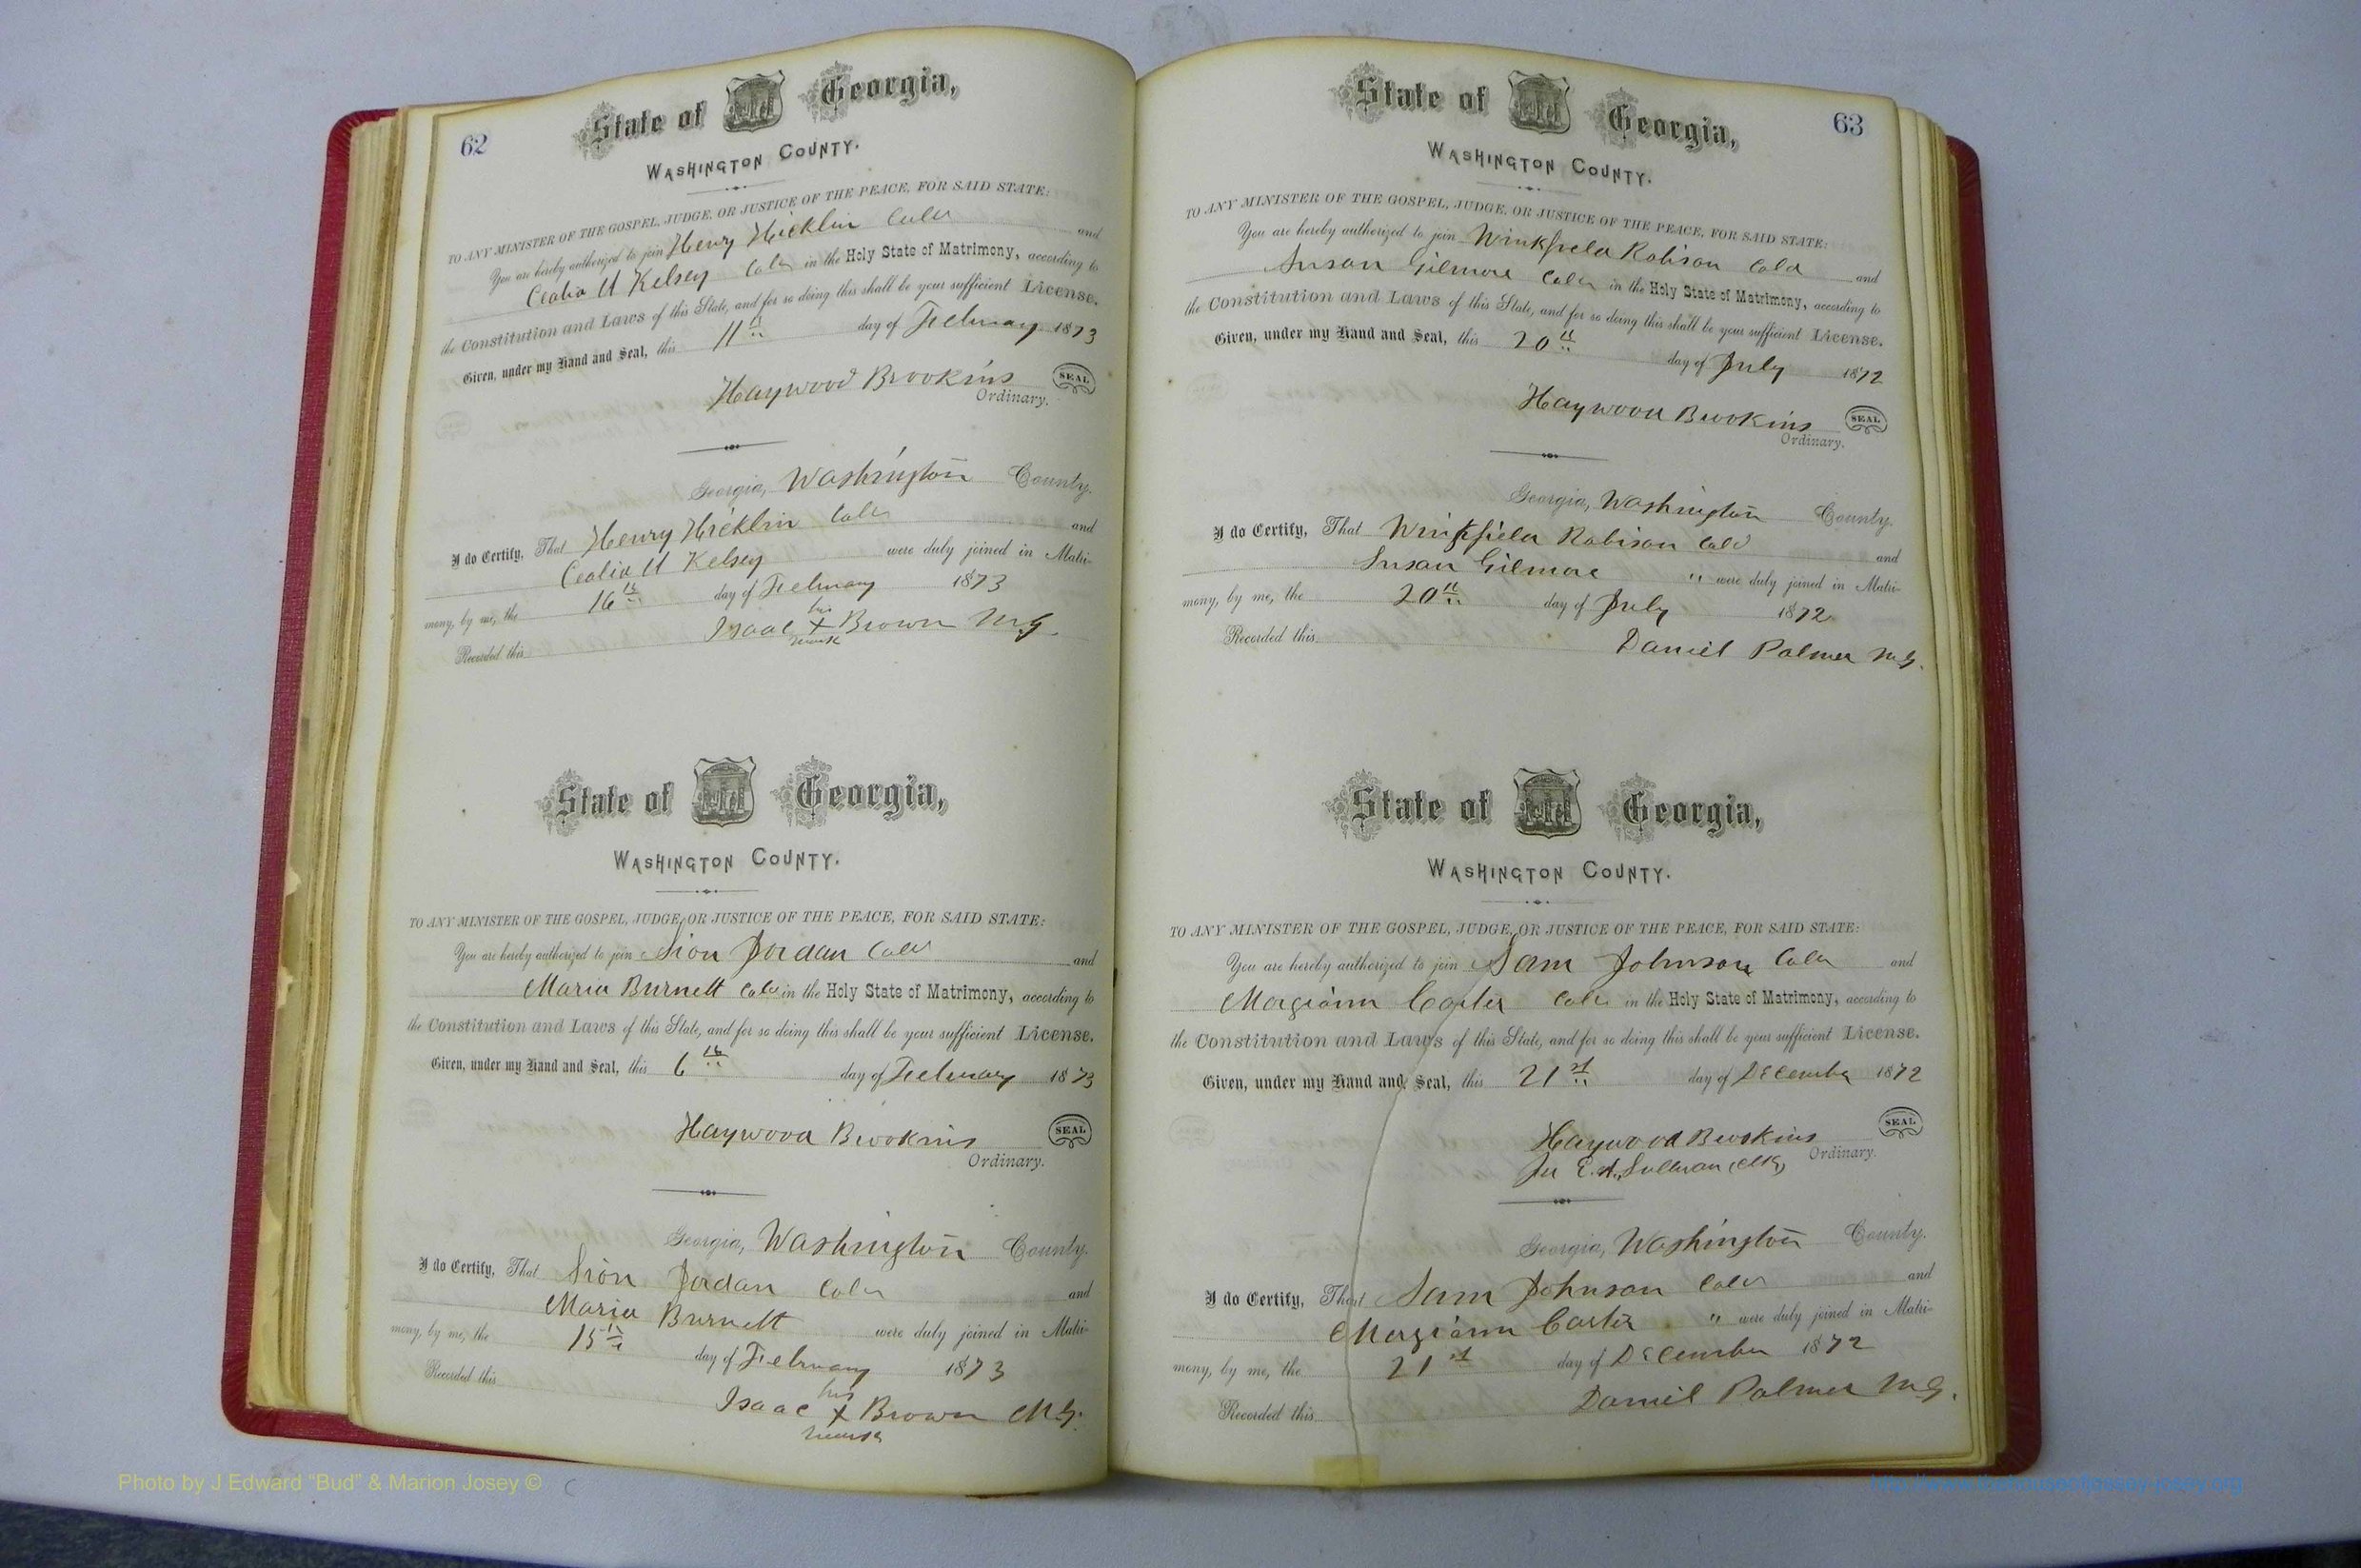 62
State of Georgia,
WASHINGTON COUNTY.
TO ANY MINISTER OF THE GOSPEL, JUDGE, OR JUSTICE OF THE PEACE, FOR SAID STATE:
You are hereby authorized to join Henry Hicklin Cold and
Cealia A Kelsey Cold in the Holy State of Matrimony, according to
the Constitution and Laws of this State, and for so doing this shall be your sufficient License.
Given, under my Hand and Seal, this 11th day of February 1873
Haywood Brookins SEAL
Ordinary.
Georgia, Washington County.
I do Certify, That Henry Hicklin Cold and
Cealia A Kelsey were duly joined in Matri-
mony, by me, the 16th day of February 1873
his
Recorded this Isaac X Brown M.G.
mark
State of Georgia,
WASHINGTON COUNTY.
TO ANY MINISTER OF THE GOSPEL, JUDGE, OR JUSTICE OF THE PEACE, FOR SAID STATE:
You are hereby authorized to join Sion Jordan Cold and
Maria Burnett Cold in the Holy State of Matrimony, according to
the Constitution and Laws of this State, and for so doing this shall be your sufficient License.
Given, under my Hand and Seal, this 6th day of February 1873
Haywood Brookins SEAL
Ordinary.
Georgia, Washington County.
I do Certify, That Sion Jordan Cold and
Maria Burnett were duly joined in Matri-
mony, by me, the 15th day of February 1873
Recorded this his
Isaac X Brown M.G.
mark
63
State of Georgia,
WASHINGTON COUNTY.
TO ANY MINISTER OF THE GOSPEL, JUDGE, OR JUSTICE OF THE PEACE, FOR SAID STATE:
You are hereby authorized to join Winkfield Robison Cold and
Susan Gilmore Cold in the Holy State of Matrimony, according to
the Constitution and Laws of this State, and for so doing this shall be your sufficient License.
Given, under my Hand and Seal, this 20th day of July 1872
Haywood Brookins SEAL
Ordinary.
Georgia, Washington County.
I do Certify, That Winkfield Robison Cold and
Susan Gilmore " were duly joined in Matri-
mony, by me, the 20th day of July 1872
Recorded this Daniel Palmer M.G.
State of Georgia,
WASHINGTON COUNTY.
TO ANY MINISTER OF THE GOSPEL, JUDGE, OR JUSTICE OF THE PEACE, FOR SAID STATE:
You are hereby authorized to join Sam Johnson Cold and
Margiann Carter Cold in the Holy State of Matrimony, according to
the Constitution and Laws of this State, and for so doing this shall be your sufficient License.
Given, under my Hand and Seal, this 21st day of December 1872
Haywood Brookins SEAL
Ordinary.
Per E. A. Sullivan, Clk,
Georgia, Washington County.
I do Certify, That Sam Johnson Cold and
Margiann Carter " were duly joined in Matri-
mony, by me, the 21st day of December 1872
Recorded this Daniel Palmer M.G.
Photo by J Edward "Bud" & Marion Josey ©